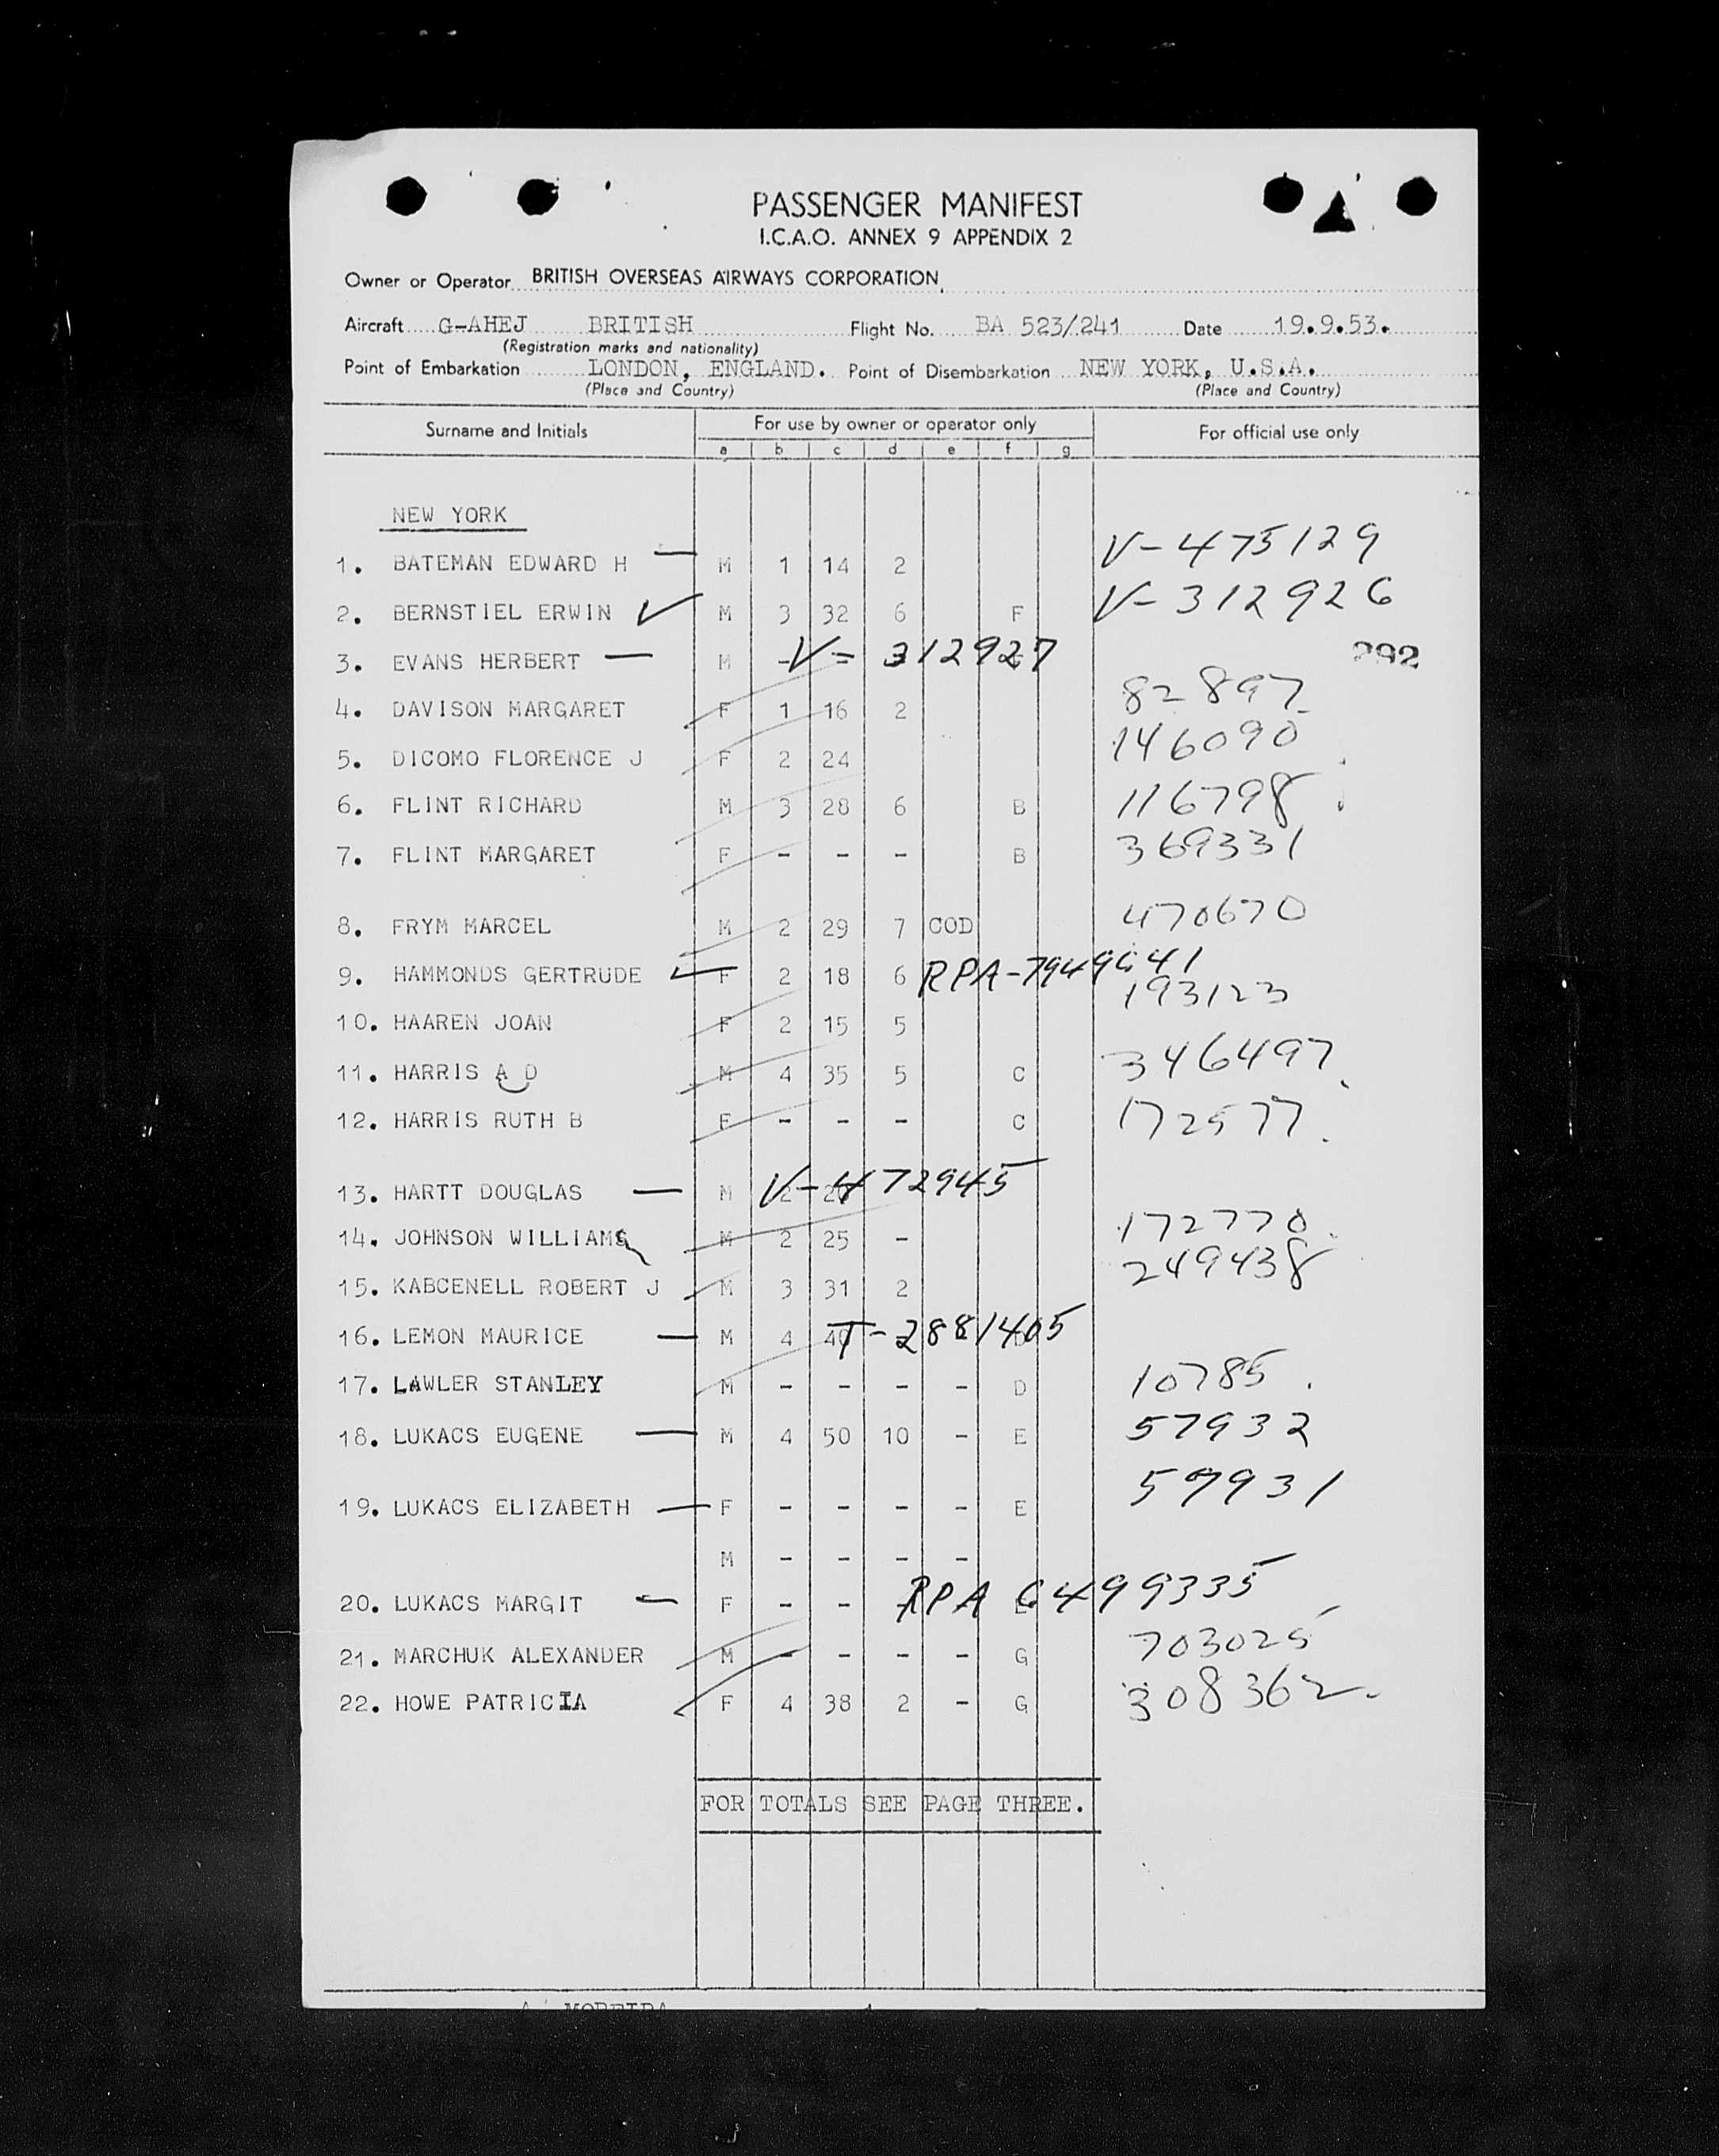 PASSENGER MANIFEST
I.C.A.O. ANNEX 9 APPENDIX 2
Owner or Operator BRITISH OVERSEAS AIRWAYS CORPORATION
Aircraft G-AHEJ BRITISH Flight No. BA 523/241 Date 19.9.53.
(Registration marks and nationality)
Point of Embarkation LONDON, ENGLAND. Point of Disembarkation NEW YORK, U.S.A.
(Place and Country) (Place and Country)
Surname and Initials For use by owner or operator only For official use only
a b c d e f g
NEW YORK
1. BATEMAN EDWARD H M 1 14 2 V-475129
2. BERNSTIEL ERWIN M 3 32 6 F V-312926
3. EVANS HERBERT M V-312927 292
4. DAVISON MARGARET F 1 16 2 82897
5. DICOMO FLORENCE J F 2 24 146090
6. FLINT RICHARD M 3 28 6 B 116798
7. FLINT MARGARET F - - - B 369331
8. FRYM MARCEL M 2 29 7 COD 470670
9. HAMMONDS GERTRUDE F 2 18 6 RPA-
10. HAAREN JOAN F 2 15 5 193123
11. HARRIS A D M 4 35 5 C 346497
12. HARRIS RUTH B F - - - C 172577
13. HARTT DOUGLAS M V-472945
14. JOHNSON WILLIAMS M 2 25 - 172770
15. KABCENELL ROBERT J M 3 31 2 249438
16. LEMON MAURICE M 4 T-2881405
17. LAWLER STANLEY M - - - - D 10785
18. LUKACS EUGENE M 4 50 10 - E 57932
19. LUKACS ELIZABETH F - - - - E 57931
M - - - -
20. LUKACS MARGIT F - - RPA 6499335
21. MARCHUK ALEXANDER M - - - - G 703025
22. HOWE PATRICIA F 4 38 2 - G 308362
FOR TOTALS SEE PAGE THREE.